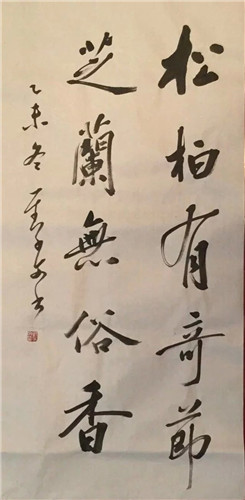 松柏有奇節
芝蘭無俗香
乙未冬
書